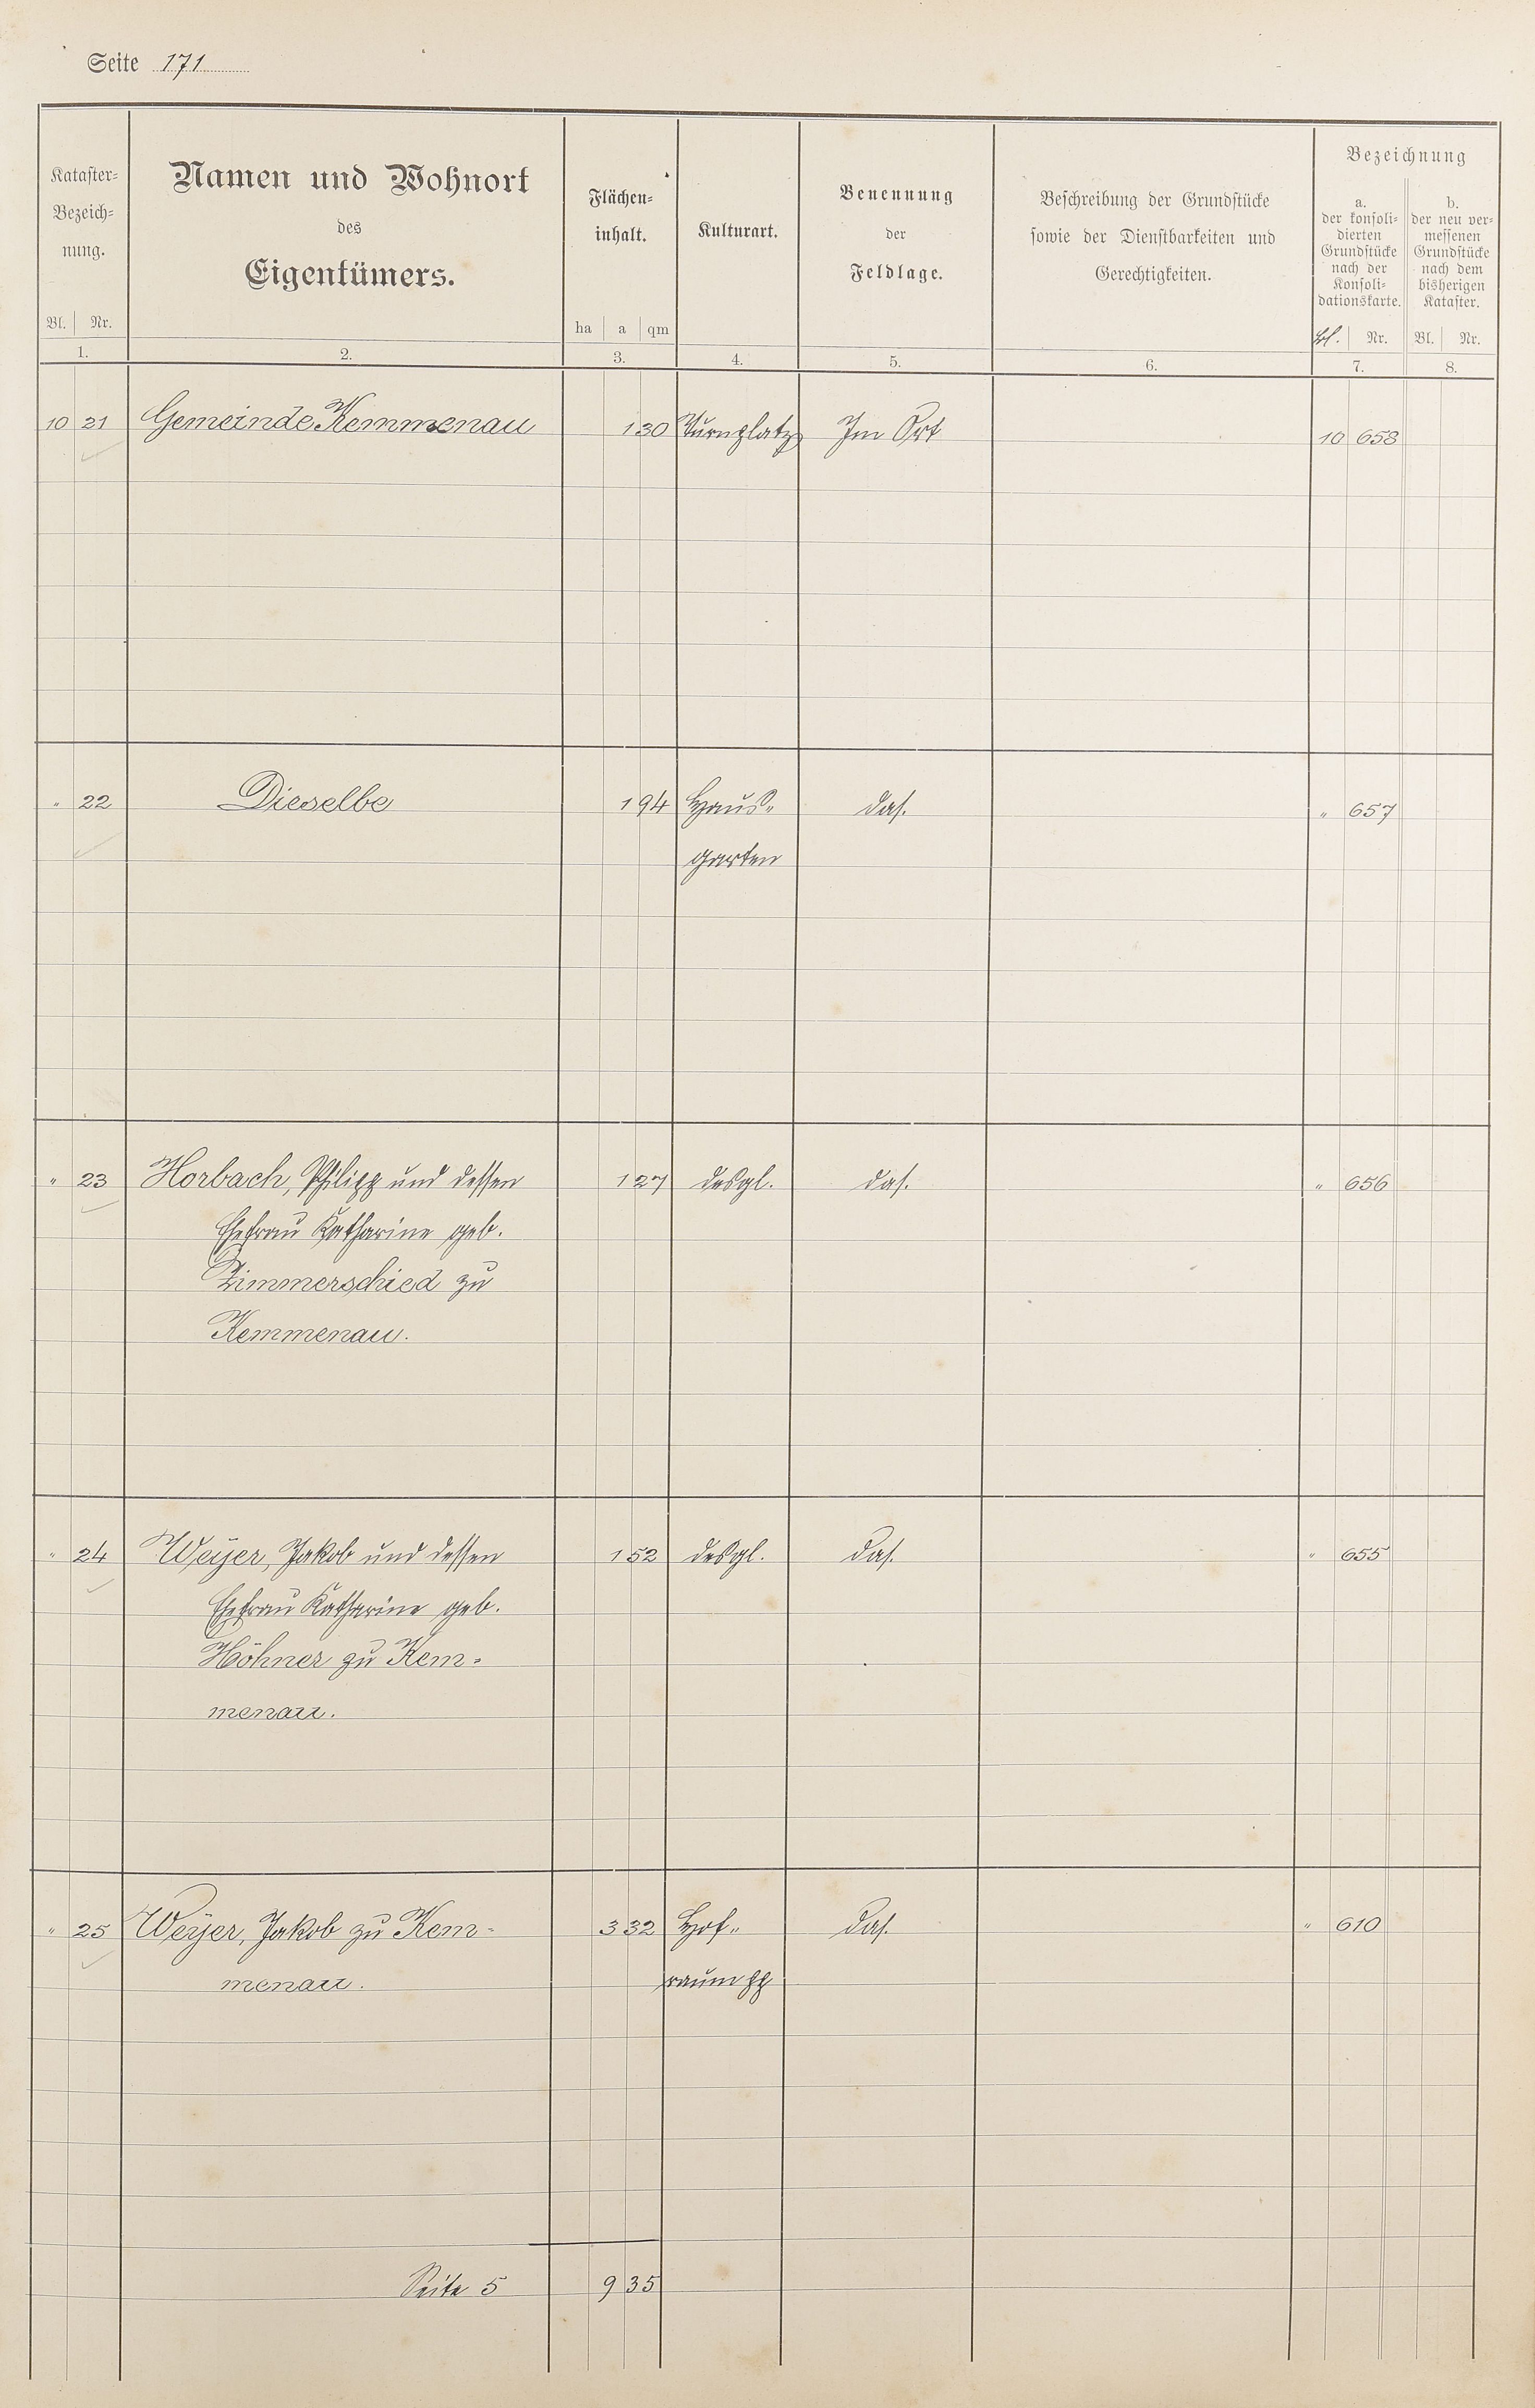 Seite 171
Kataster-
Bezeich-
nung.
Bl. Nr.
1.
Namen und Wohnort
des
Eigentümers.
2.
Flächen-
inhalt.
ha a qm
3.
Kulturart.
4.
Benennung
der
Feldlage.
5.
Beschreibung der Grundstücke
sowie der Dienstbarkeiten und
Gerechtigkeiten.
6.
Bezeichnung
a.
der konsoli-
dierten
Grundstücke
nach der
Konsoli-
dationskarte.
Bl. Nr.
7.
b.
der neu ver-
messenen
Grundstücke
nach dem
bisherigen
Kataster.
Bl. Nr.
8.
10 21 Gemeinde Kemmenau 1 30 Turnplatz Im Ort 10 658
" 22 Dieselbe 1 94 Haus- das. " 657
garten
" 23 Horbach, Philipp und dessen 1 27 desgl. das. " 656
Ehefrau Katharine geb.
Zimmerschied zu
Kemmenau.
" 24 Weyer, Jakob und dessen 1 52 desgl. das. " 655
Ehefrau Katharine geb.
Höhner zu Kem-
menau.
" 25 Weyer, Jakob zu Kem- 3 32 Hof- das. " 610
menau. raum pp
Seite 5 9 35